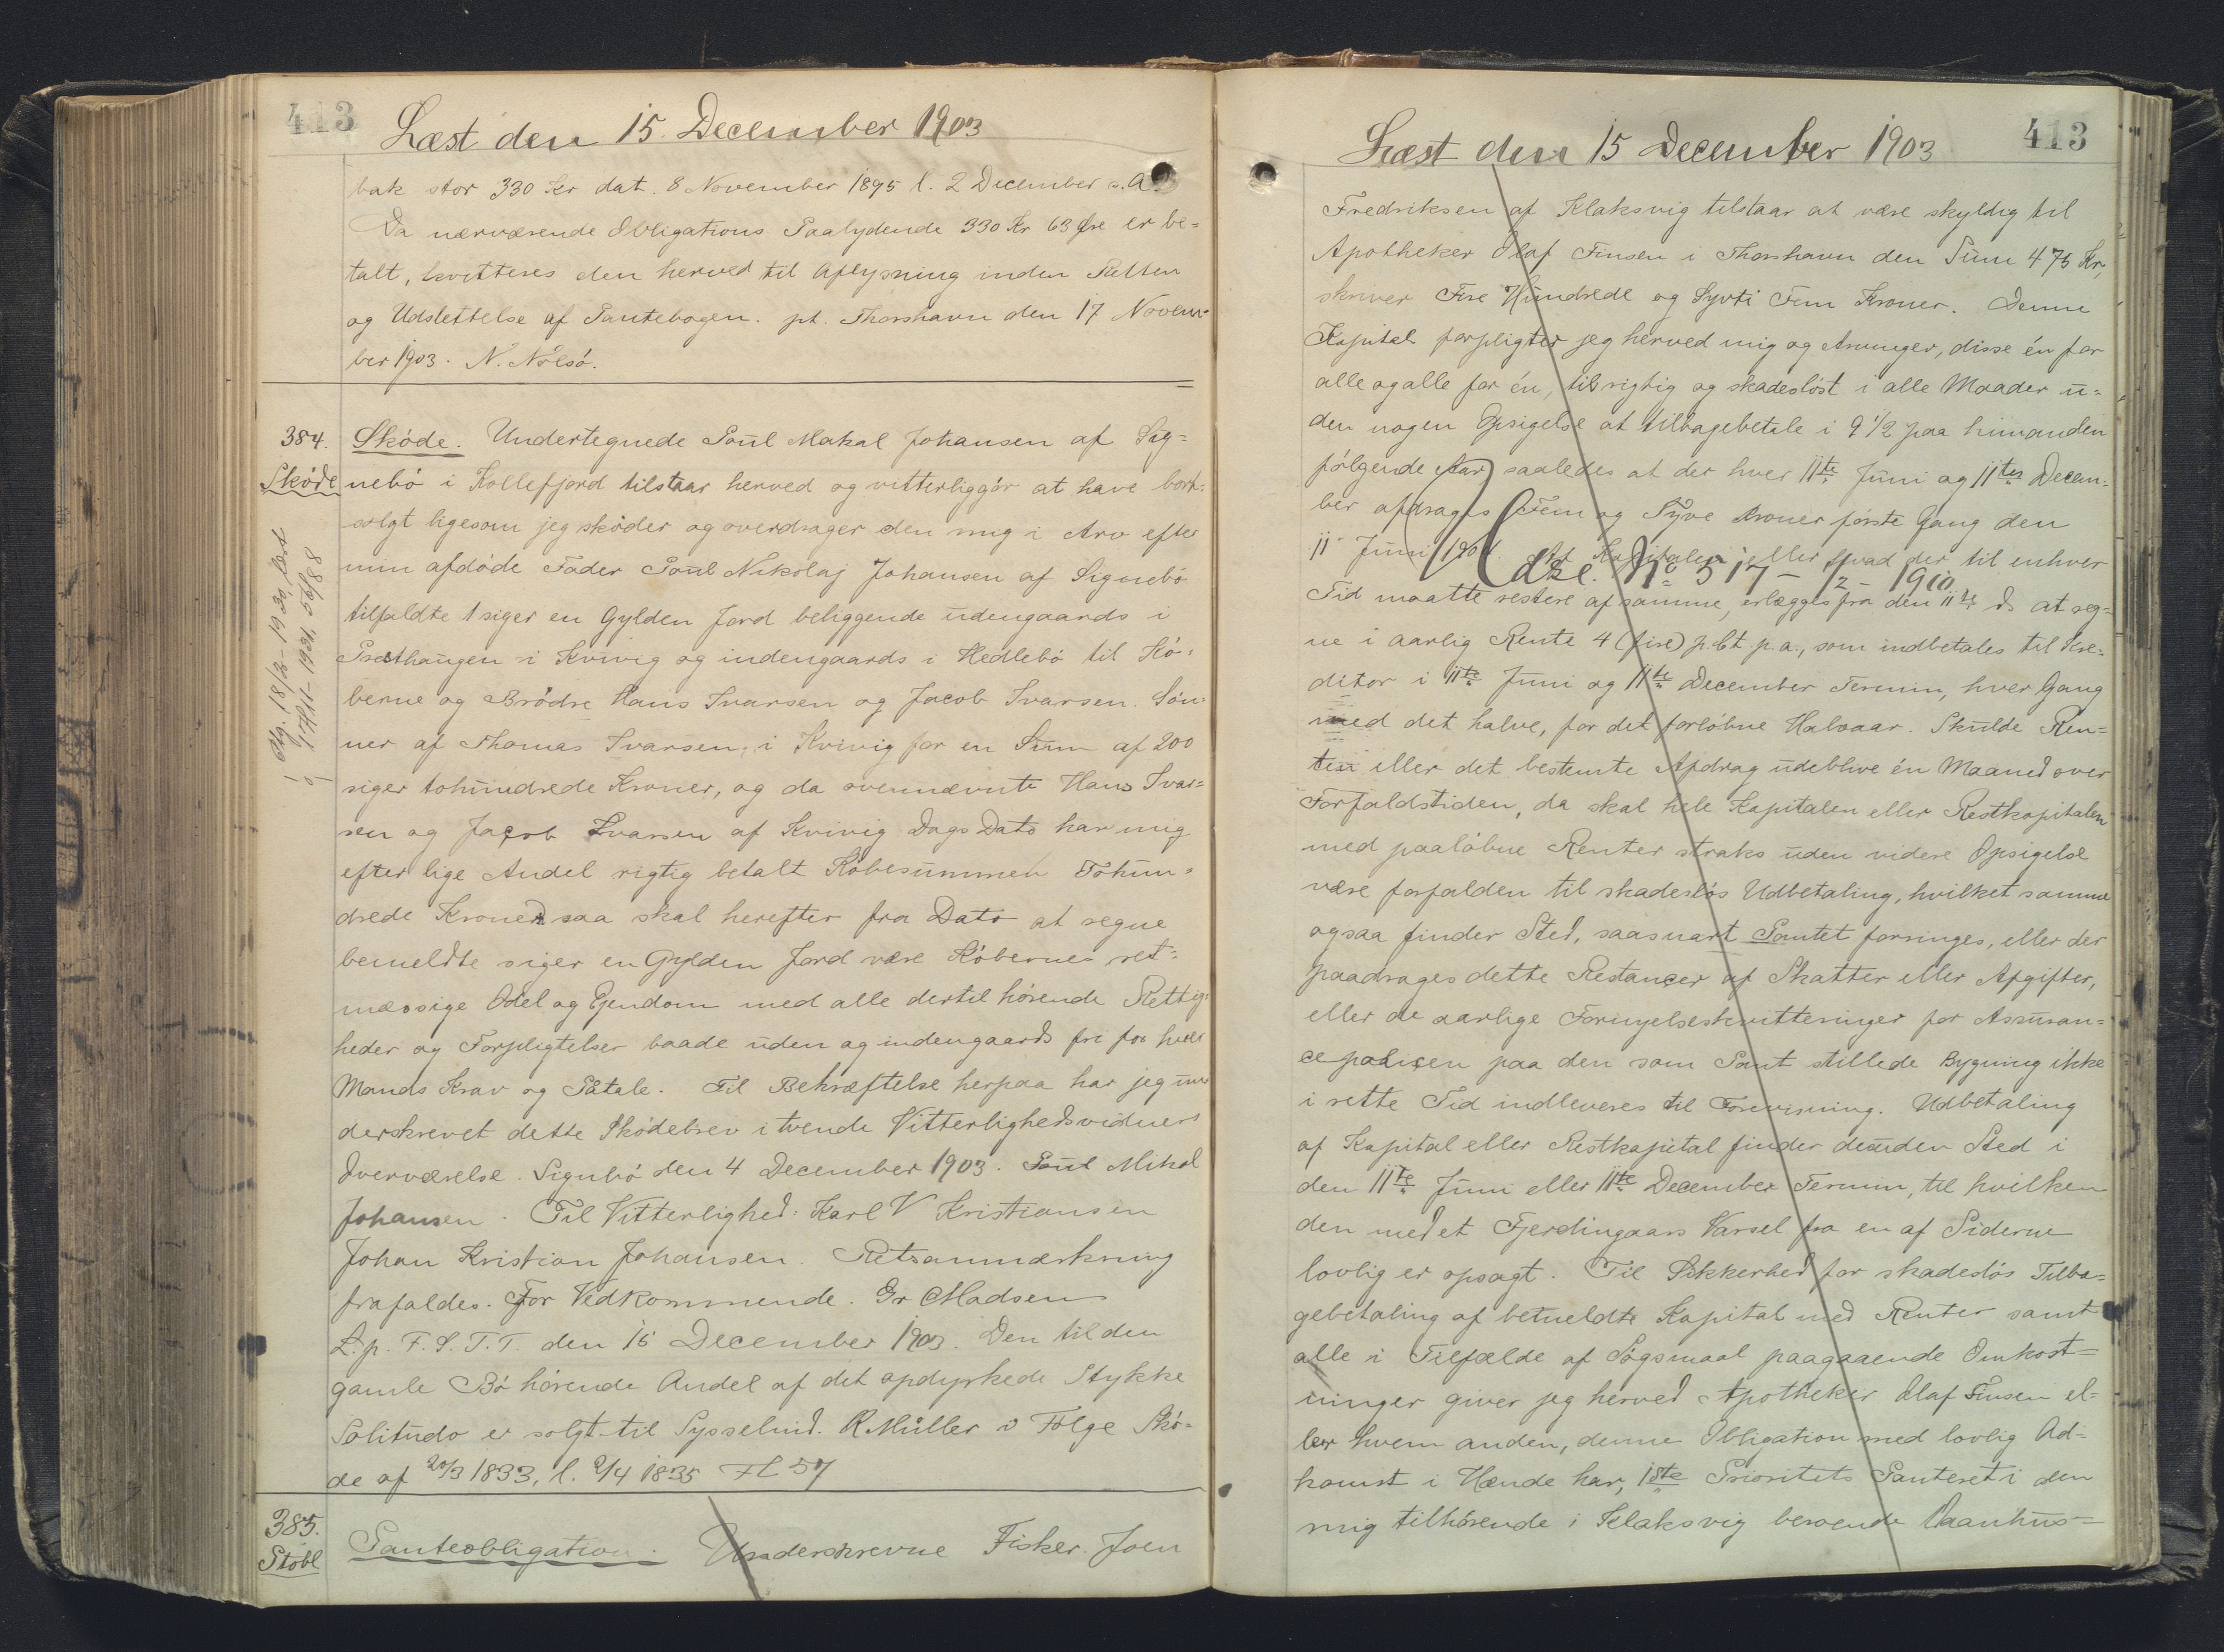 413
Læst den 15. December 1903
bak stor 330 Kr dat. 8 November 1895 l. 2 December s. A.
Da nærværende Obligations Paalydende 330 Kr 63 Øre er be-
talt, kvitteres den herved til Aflysning inden Retten
og Udslettelse af Pantebogen. pt. Thorshavn den 17 Novem-
ber 1903. N. Nólsö.
384.
Sköde
Sköde. Undertegnede Poul Mikal Johansen af Sig-
nebö i Kollefjord tilstaar herved og vitterliggör at have bort-
solgt ligesom jeg sköder og overdrager den mig i Arv efter
min afdöde Fader Poul Nikolaj Johansen af Signebö
tilfaldte 1 siger en Gylden Jord beliggende udengaards i
Præsthaugen i Kvivig og indengaards i Hedlebö til Kö-
berne og Brödre Hans Ivarsen og Jacob Ivarsen. Sön-
ner af Thomas Ivarsen, i Kvivig for en Sum af 200
siger tohundrede Kroner, og da ovennævnte Hans Ivar-
sen og Jacob Ivarsen af Kvivig Dags Dato har mig
efter lige Andel rigtig betalt Köbesummen Tohun-
drede Kroner saa skal herefter fra Dato at regne
bemeldte siger en Gylden Jord være Köbernes ret-
mæssige Odel og Ejendom med alle dertil hörende Rettig-
heder og Forpligtelser baade uden og indengaards fri for hver
Mands Krav og Påtale. Til Bekræftelse herpaa har jeg un-
derskrevet dette Sködebrev i tvende Vitterlighedsvidners
Overværelse. Signebö den 4 December 1903. Poul Mikal
Johansen. Til Vitterlighed: Karl V Kristiansen
Johan Kristian Johansen. Retsanmærkning
frafaldes. For Vedkommende. Gr Madsen
L. p. F. S. T. T. den 15 December 1903. Den til den
gamle Bö hörende Andel af det opdyrkede Stykke
Solitudo er solgt til Sysselmd. R Müller i Fölge Skö-
de af 20/3 1833, l. 9/4 1835 Fl 57
385.
Stobl
Panteobligation. Underskrevne Fisker Joen
413
Læst den 15 December 1903
Fredriksen af Klaksvig tilstaar at være skyldig til
Apotheker Olaf Finsen i Thorshavn den Sum 475 Kr,
skriver Fire Hundrede og Syvti Fem Kroner. Denne
Kapital forpligter jeg herved mig og Arvinger, disse én for
alle og alle for én, til rigtig og skadeslöst i alle Maader u-
den nogen Opsigelse at tilbagebetale i 9 1/2 paa hinanden
fölgende Aar saaledes at der hver 11te Juni og 11te Decem-
ber afdrages Fem og Tyve Kroner förste Gang den
11 Juni 1904. Af Kapitalen eller hvad der til enhver
Tid maatte restere af samme, erlægges fra den 11te ds at reg-
ne i aarlig Rente 4 (fire) p.Ct p.a., som indbetales til Kre-
ditor i 11te Juni og 11te December Termin, hver Gang
med det halve, for det forlöbne Halvaar. Skulde Ren-
ten eller det bestemte Afdrag udeblive én Maaned over
Forfaldstiden, da skal hele Kapitalen eller Restkapitalen
med paalöbne Renter straks uden videre Opsigelse
være forfalden til skadeslös Udbetaling, hvilket samme
ogsaa finder Sted, saasnart Pantet forringes, eller der
paadrages dette Restancer af Skatter eller Afgifter,
eller de aarlige Fornyelseskvitteringer for Assuran-
cepolicen paa den som Pant stillede Bygning ikke
i rette Tid indleveres til Forevisning. Udbetaling
af Kapital eller Restkapital finder desuden Sted i
den 11te Juni eller 11te December Termin, til hvilken
den med et Fjerdingaars Varsel fra en af Siderne
lovlig er opsagt. Til Sikkerhed for skadeslös Tilba-
gebetaling af bemeldte Kapital med Renter samt
alle i Tilfælde af Sögsmaal paagaaende Omkost-
ninger giver jeg herved Apotheker Olaf Finsen el-
ler hvem anden, denne Obligation med lovlig Ad-
komst i Hænde har, 1ste Prioritets Panteret i den
mig tilhörende i Klaksvig beroende Vaanhus-